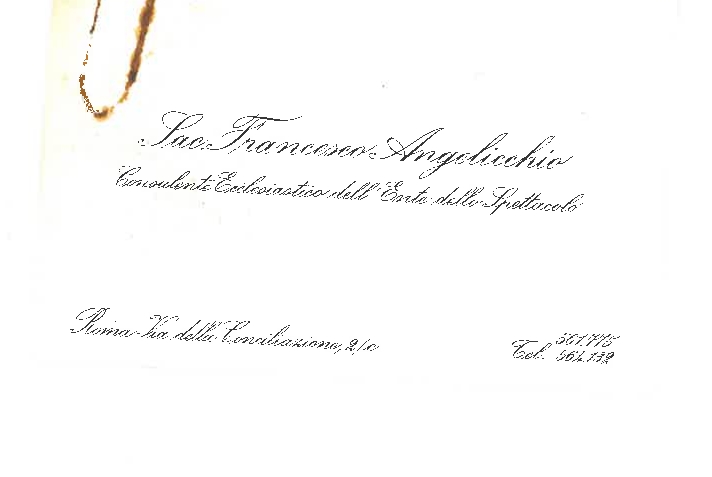 Sac. Francesco Angelicchio
Consulente Ecclesiastico dell'Ente dello Spettacolo
Roma - Via della Conciliazione, 2/c
Tel. 561.775
564.132